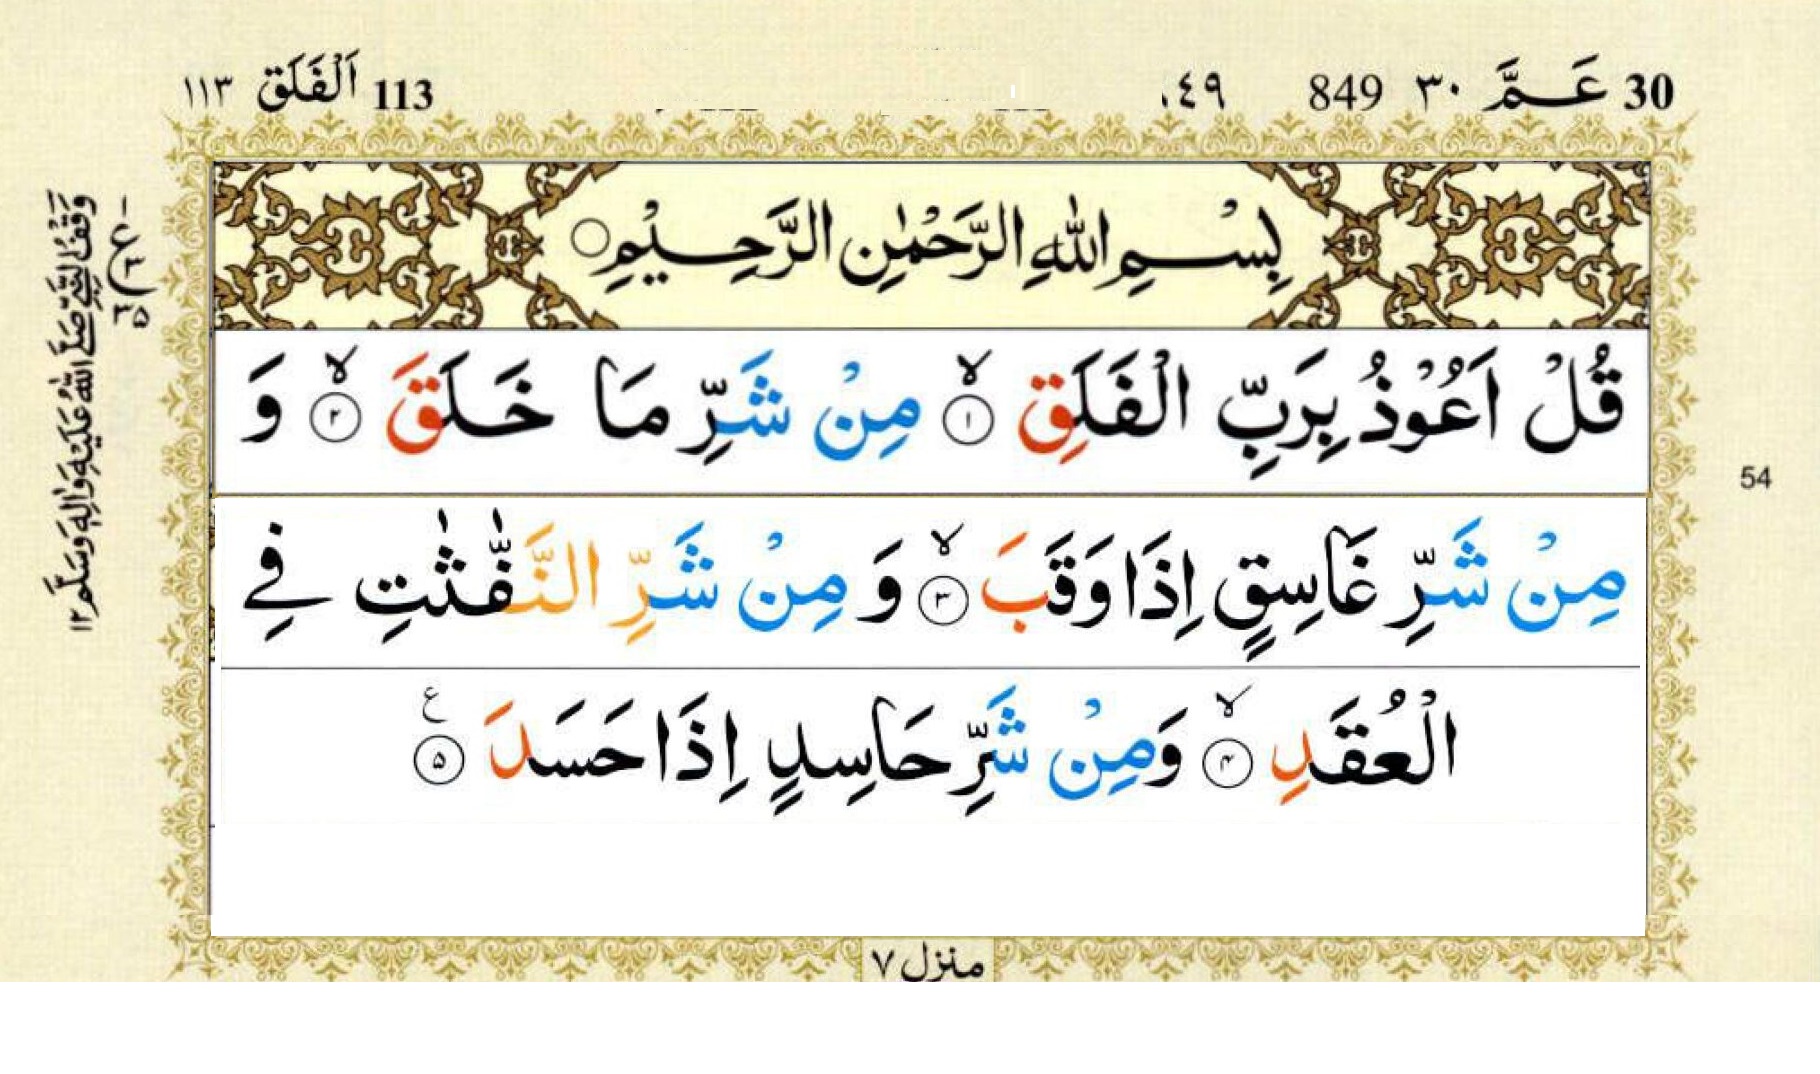 30 عَـمَّ ٣٠ 849 ٤٩. 113 اَلْفَلَق ١١٣
بِسْـمِ اللّٰهِ الرَّحْمٰنِ الرَّحِـيْمِ ○
قُلْ اَعُوْذُ بِرَبِّ الْفَلَقِ ۙ ١ مِنْ شَرِّ مَا خَلَقَ ۙ ٢ وَ
مِنْ شَرِّ غَاسِقٍ اِذَا وَقَبَ ۙ ٣ وَ مِنْ شَرِّ النَّفّٰثٰتِ فِے
الْعُقَدِ ۙ ٤ وَمِنْ شَرِّ حَاسِدٍ اِذَا حَسَدَ ع ۵
منزل ٧
54
وَقْفُ النَّبِيِّ صَلَّى اللّٰهُ عَلَيْهِ وَاٰلِهٖ وَسَلَّمَ ١٢
ع
٣٥